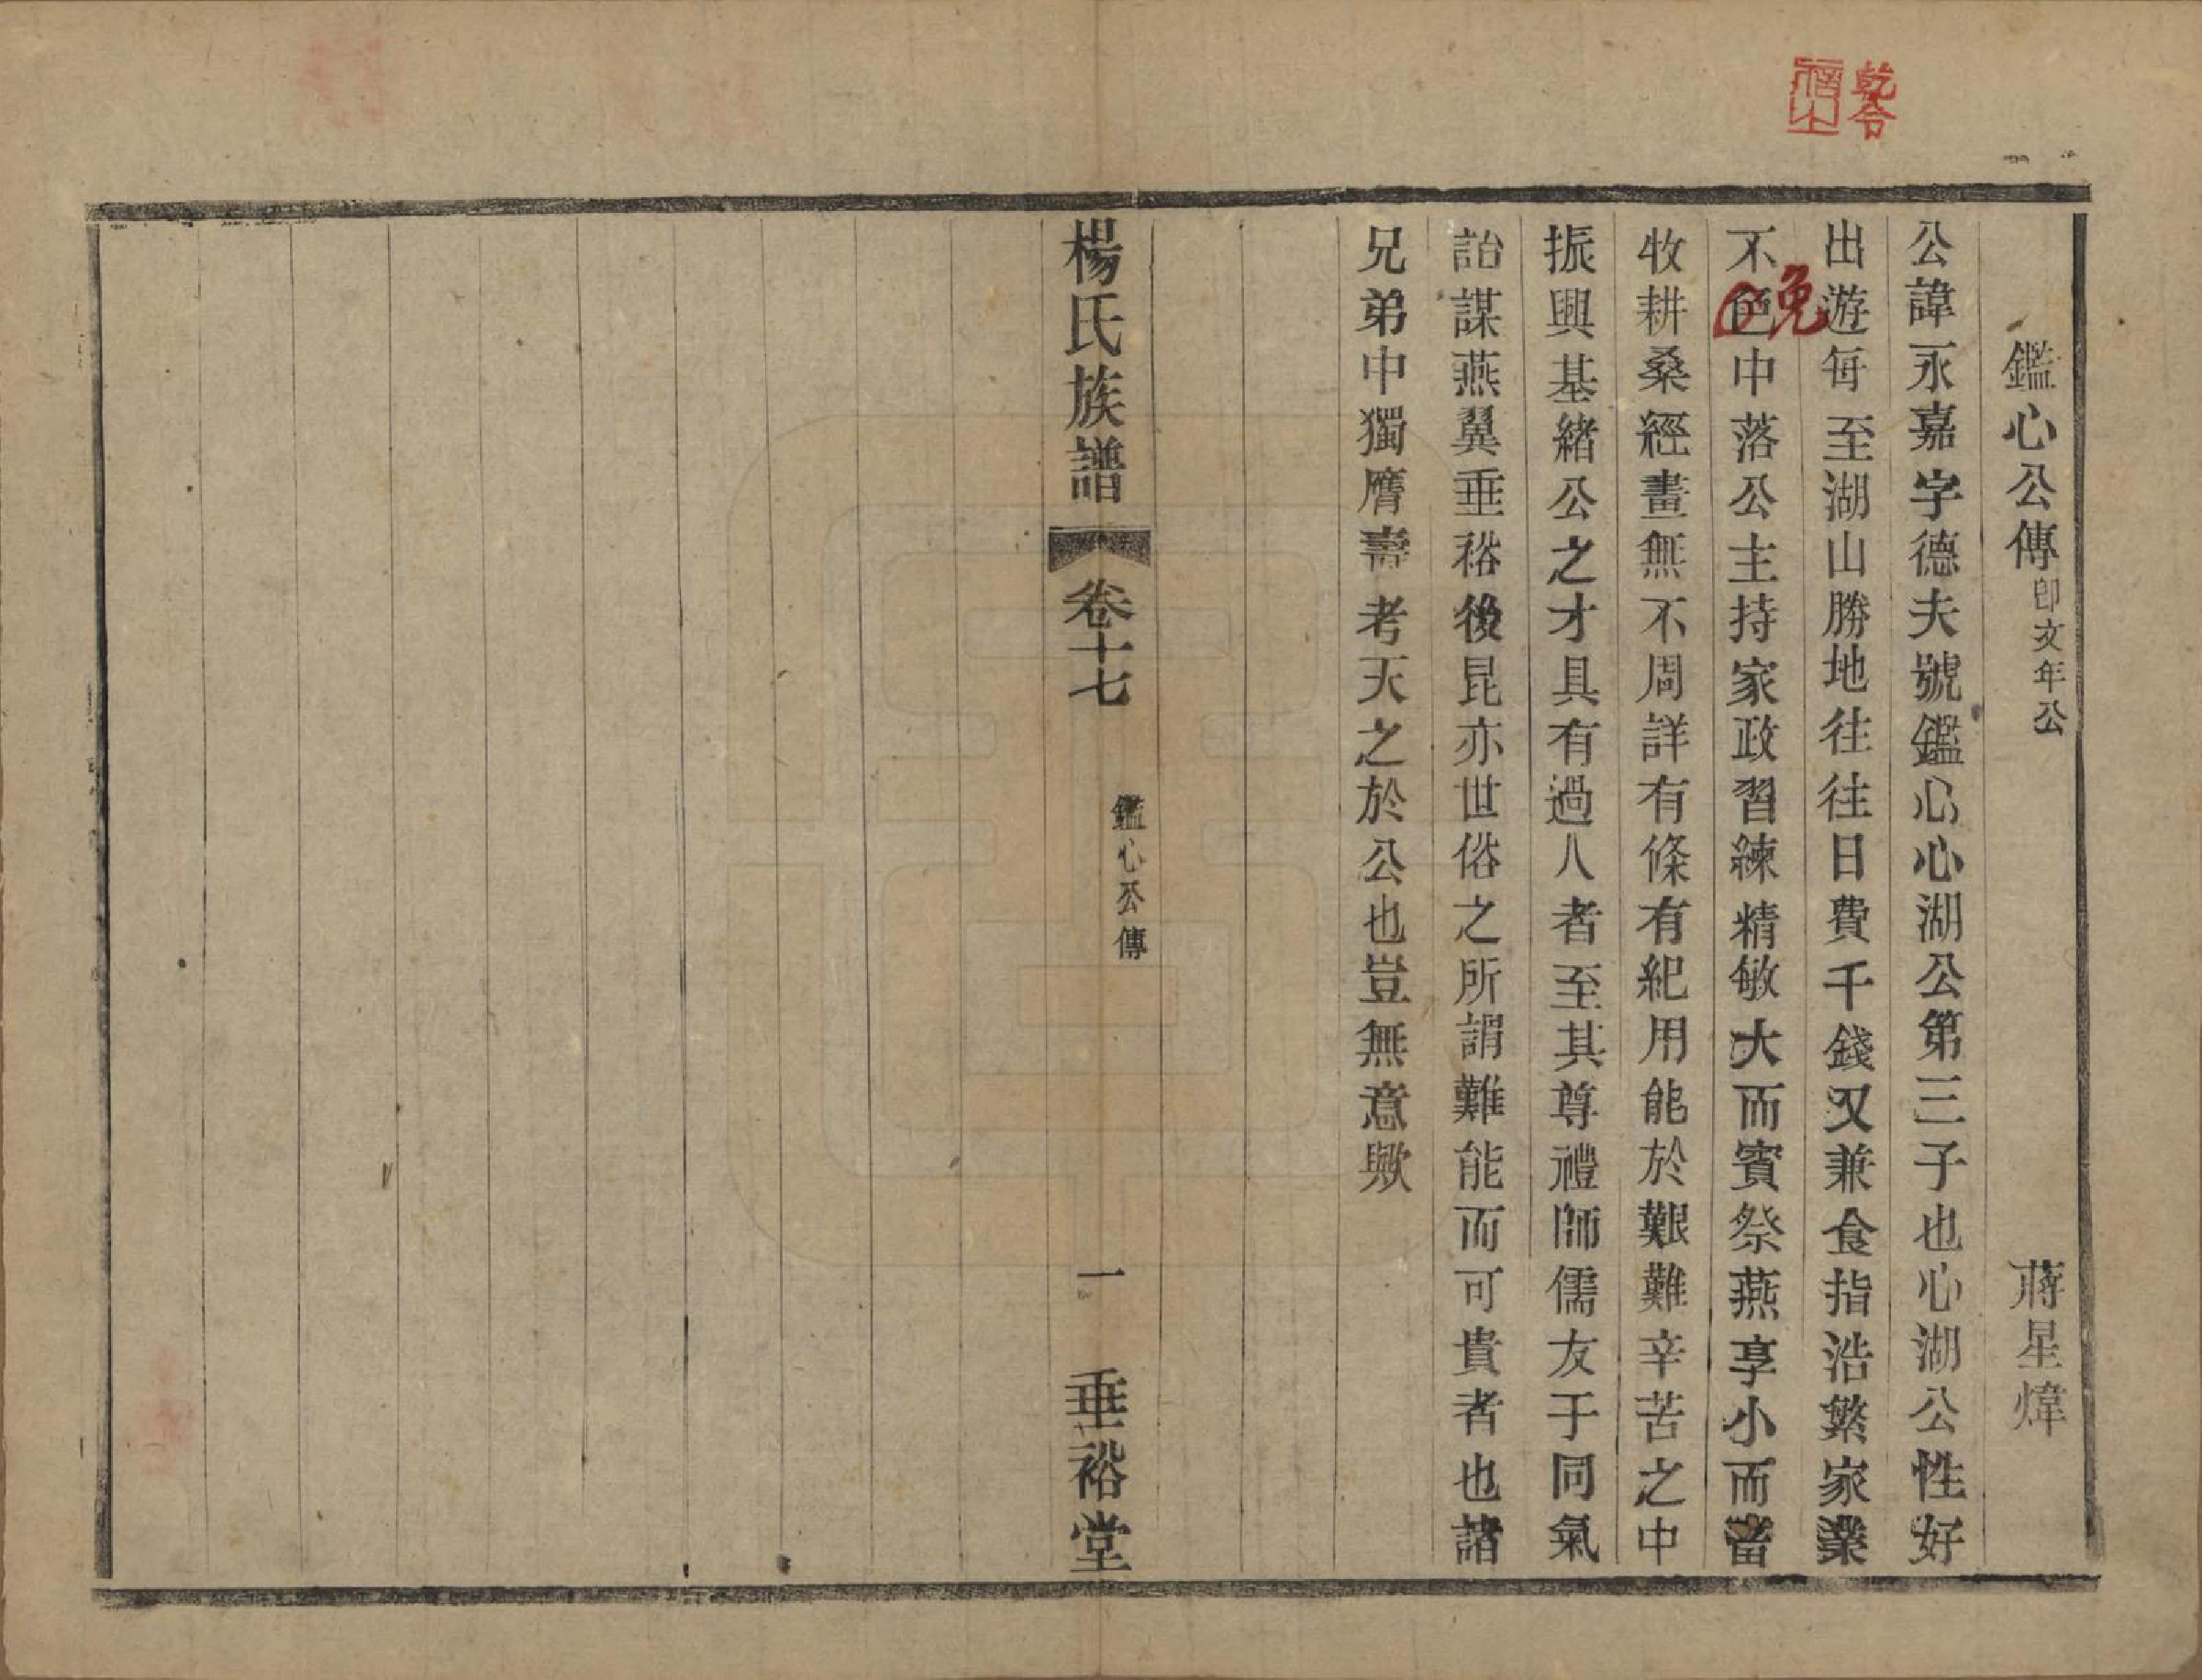 鑑心公傳 即文年公 蔣星煒
公諱永嘉字德夫號鑑心心湖公第三子也心湖公性好
出遊每至湖山勝地往往日費千錢又兼食指浩繁家業
不色中落公主持家政習練精敏大而賓祭燕享小而畜
免
牧耕桑經畫無不周詳有條有紀用能於艱難辛苦之中
振興基緒公之才具有過人者至其尊禮師儒友于同氣
詒謀燕翼垂裕後昆亦世俗之所謂難能而可貴者也諸
兄弟中獨膺壽考天之於公也豈無意歟
楊氏族譜 卷十七 鑑心公傳 一 垂裕堂